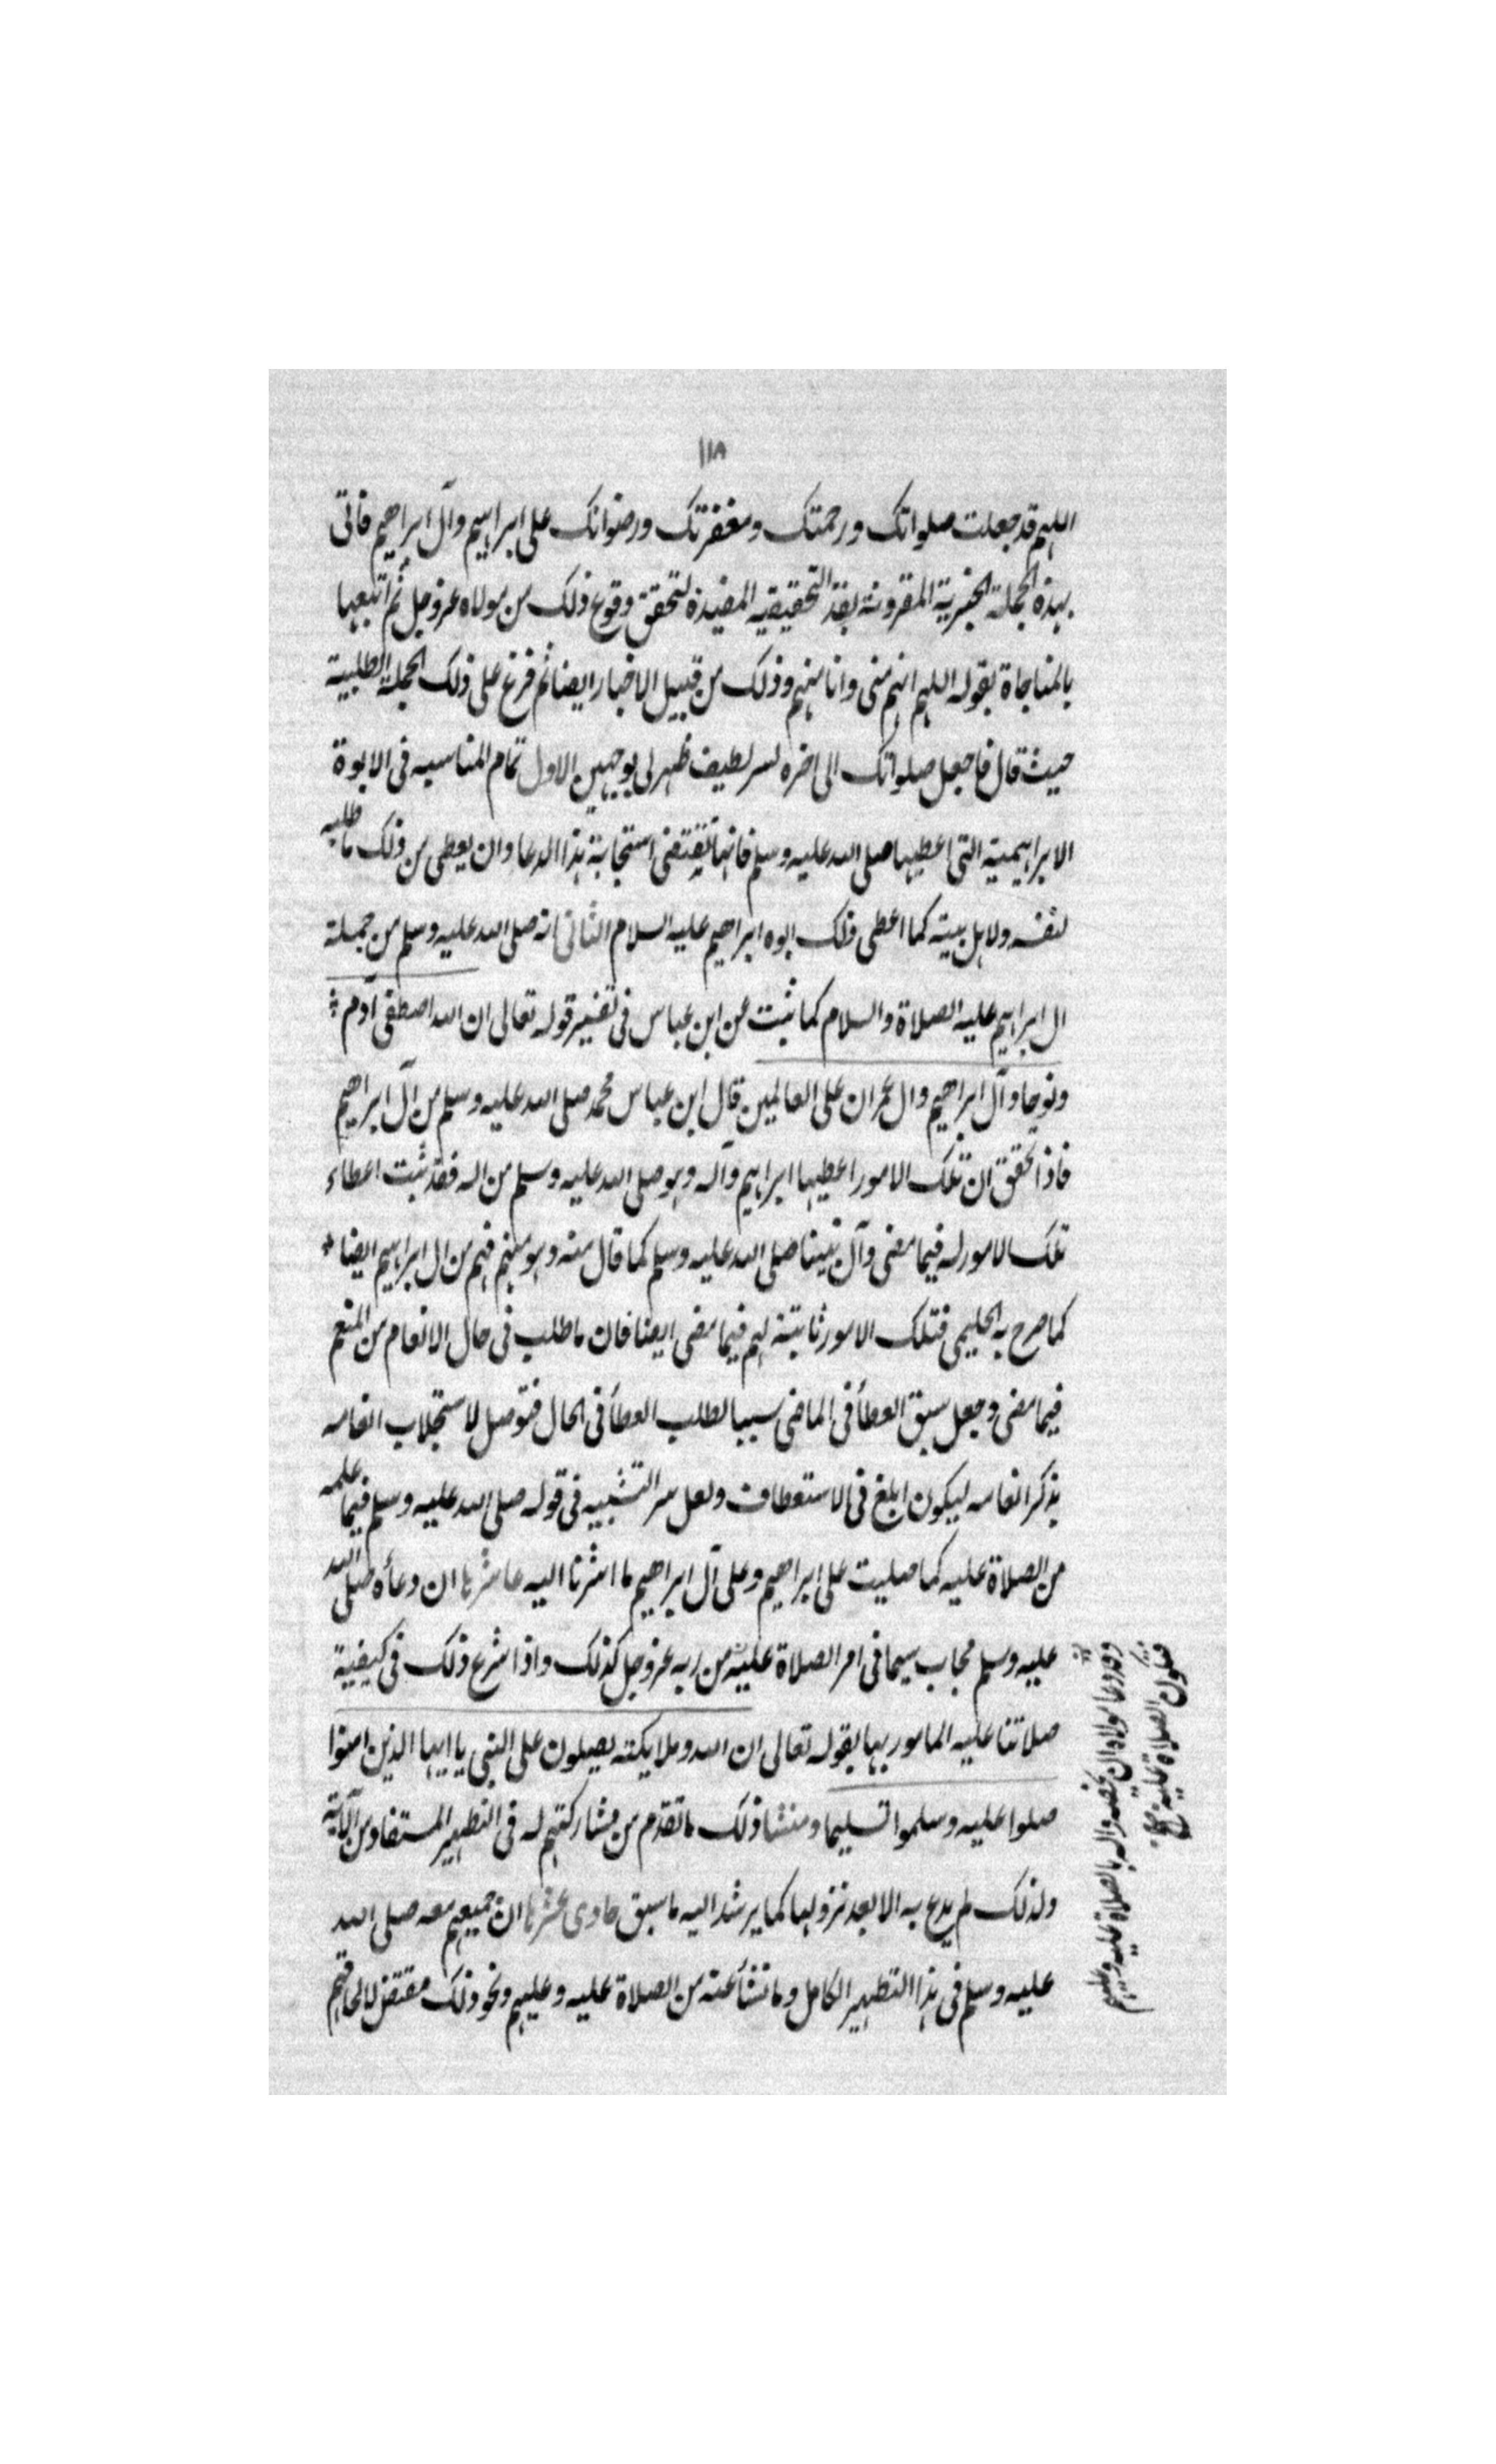 ١١٨
اللهم قد جعلت صلواتك ورحمتك ومغفرتك ورضوانك على ابراهيم وآل ابراهيم فاتى
بهذه الجملة الخبرية المقرونة بقد التحقيقيه المفيدة لتحقق وقوع ذلك من مولاه عز وجل ثم اتبعها
بالمناجاة بقوله اللهم انهم منى وانا منهم وذلك من قبيل الاخبار ايضا ثم فرع على ذلك الجملة الطلبية
حيث قال فاجعل صلواتك الى اخره لسر لطيف ظهر لى بوجهين الاول تمام المناسبه فى الابوة
الابراهيمية التى اعطيها صلى الله عليه وسلم فانها تقتضى استجابة هذا الدعا وان يعطى من ذلك ما طلبه
لنفسه ولاهل بيته كما اعطى ذلك ابوه ابراهيم عليه السلام الثانى انه صلى الله عليه وسلم من جملة
ال ابراهيم عليه الصلاة والسلام كما ثبت عن ابن عباس فى تفسير قوله تعالى ان الله اصطفى آدم
ونوحا وآل ابراهيم وال عمران على العالمين قال ابن عباس محمد صلى الله عليه وسلم من آل ابراهيم
فاذا تحقق ان تلك الامور اعطيها ابراهيم وآله وهو صلى الله عليه وسلم من اله فقد ثبت اعطاء
تلك الامور له فيما مضى وآل نبينا صلى الله عليه وسلم كما قال منه وهو منهم فهم من ال ابراهيم ايضا
كما صرح به الحليمى فتلك الامور ثابتة لهم فيما مضى ايضا فان ما طلب فى حال الانعام من المنعم
فيما مضى وجعل سبق العطأ فى الماضى سببا لطلب العطأ فى الحال فتوصل لاستجلاب انعامه
بذكر انعامه ليكون ابلغ فى الاستعطاف ولعل سر التشبيه فى قوله صلى الله عليه وسلم فيما علمه
من الصلاة عليه كما صليت على ابراهيم وعلى آل ابراهيم ما اشرنا اليه عاشرها ان دعأه صلى الله
عليه وسلم مجاب سيما فى امر الصلاة عليه من ربه عز وجل كذلك واذا شرع ذلك فى كيفية
صلاتنا عليه المامور بها بقوله تعالى ان الله وملايكته يصلون على النبى يا ايها الذين امنوا
صلوا عليه وسلموا تسليما ومنشا ذلك ما تقدم من مشاركتهم له فى التطهير المستفاد من الآية
ولذلك لم يدع به الا بعد نزولها كما يرشد اليه ما سبق حادى عشرها ان جميعهم معه صلى الله
عليه وسلم فى هذا التطهير الكامل وما تنشأ عنه من الصلاة عليه وعليهم ونحو ذلك مقتض لالحاقهم
وقد دعا مولاه ان يخصه واله بالصلاة عليه وعليهم
فتكون الصلاة عليه